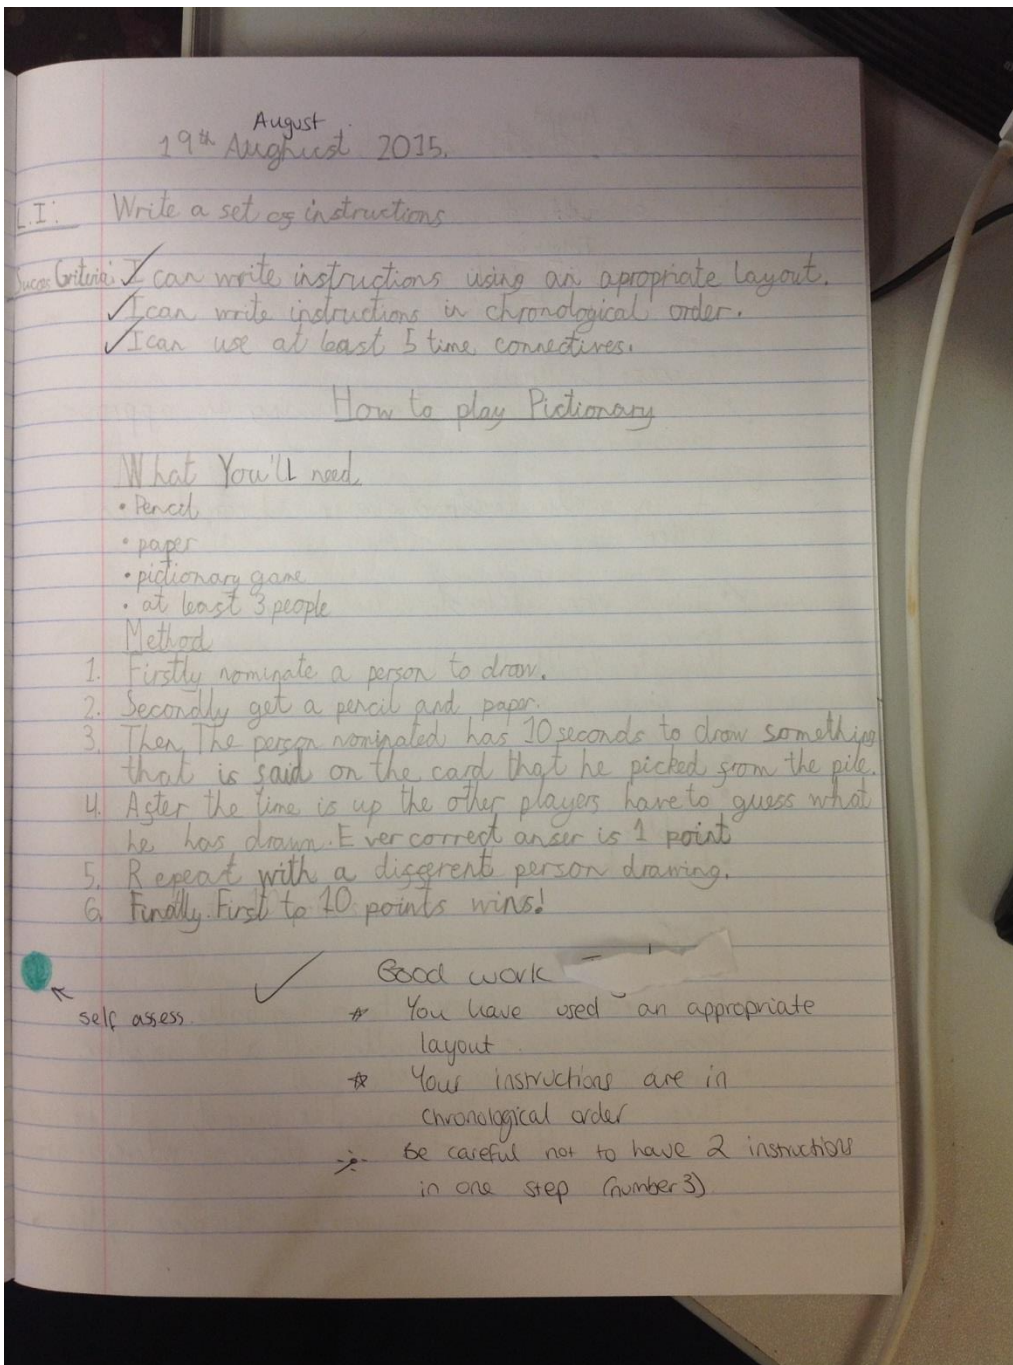 August
19th Aughust 2015.
L.I: Write a set of instructions
Succes Criteria: I can write instructions using an apropriate layout.
I can write instructions in chronological order.
I can use at least 5 time connectives.
How to play Pictionary
What You'll need
• Pencil
• paper
• pictionary game
• at least 3 people
Method
1. Firstly nominate a person to draw.
2. Secondly get a pencil and paper.
3. Then, The person nominated has 10 seconds to draw something
that is said on the card that he picked from the pile.
4. After the time is up the other players have to guess what
he has drawn. Ever correct anser is 1 point
5. Repeat with a different person drawing.
6. Finally. First to 10 points wins!
Good work
self assess
You have used an appropriate
layout
Your instructions are in
chronological order
Be careful not to have 2 instructions
in one step (number 3)